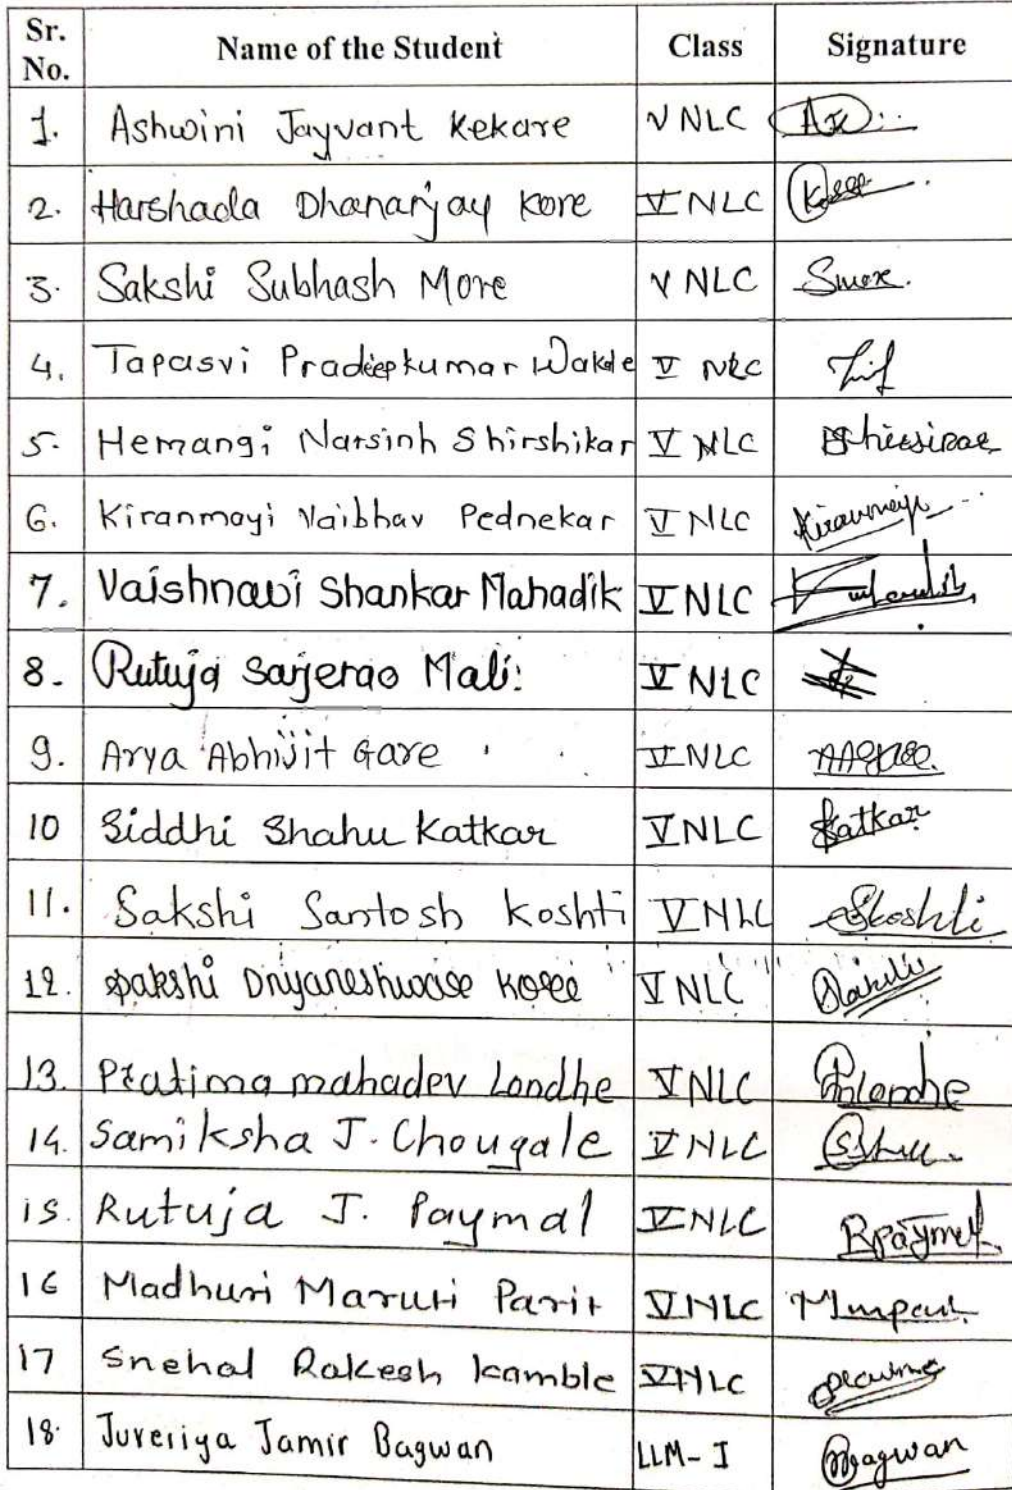 Sr. No. Name of the Student Class Signature
1. Ashwini Jayvant Kekare V NLC
2. Harshada Dhananjay Kore V NLC
3. Sakshi Subhash More V NLC
4. Tapasvi Pradeepkumar Wakde V NLC
5. Hemangi Narsinh Shirshikar V NLC
6. Kiranmayi Vaibhav Pednekar V NLC Kiranmayi
7. Vaishnavi Shankar Mahadik V NLC
8. Rutuja Sarjerao Mali V NLC
9. Arya Abhijit Gare V NLC
10 Siddhi Shahu Katkar V NLC Skatkar
11. Sakshi Santosh Koshti V NLC Skoshti
12. Sakshi Dnyaneshwar Kore V NLC
13. Pratima mahadev Londhe V NLC
14. Samiksha J. Chougale V NLC
15. Rutuja J. Paymal V NLC Rpaymal
16 Madhuri Maruti Parit V NLC
17 Snehal Rakesh Kamble V NLC
18. Juveriya Jamir Bagwan LLM-I Bagwan